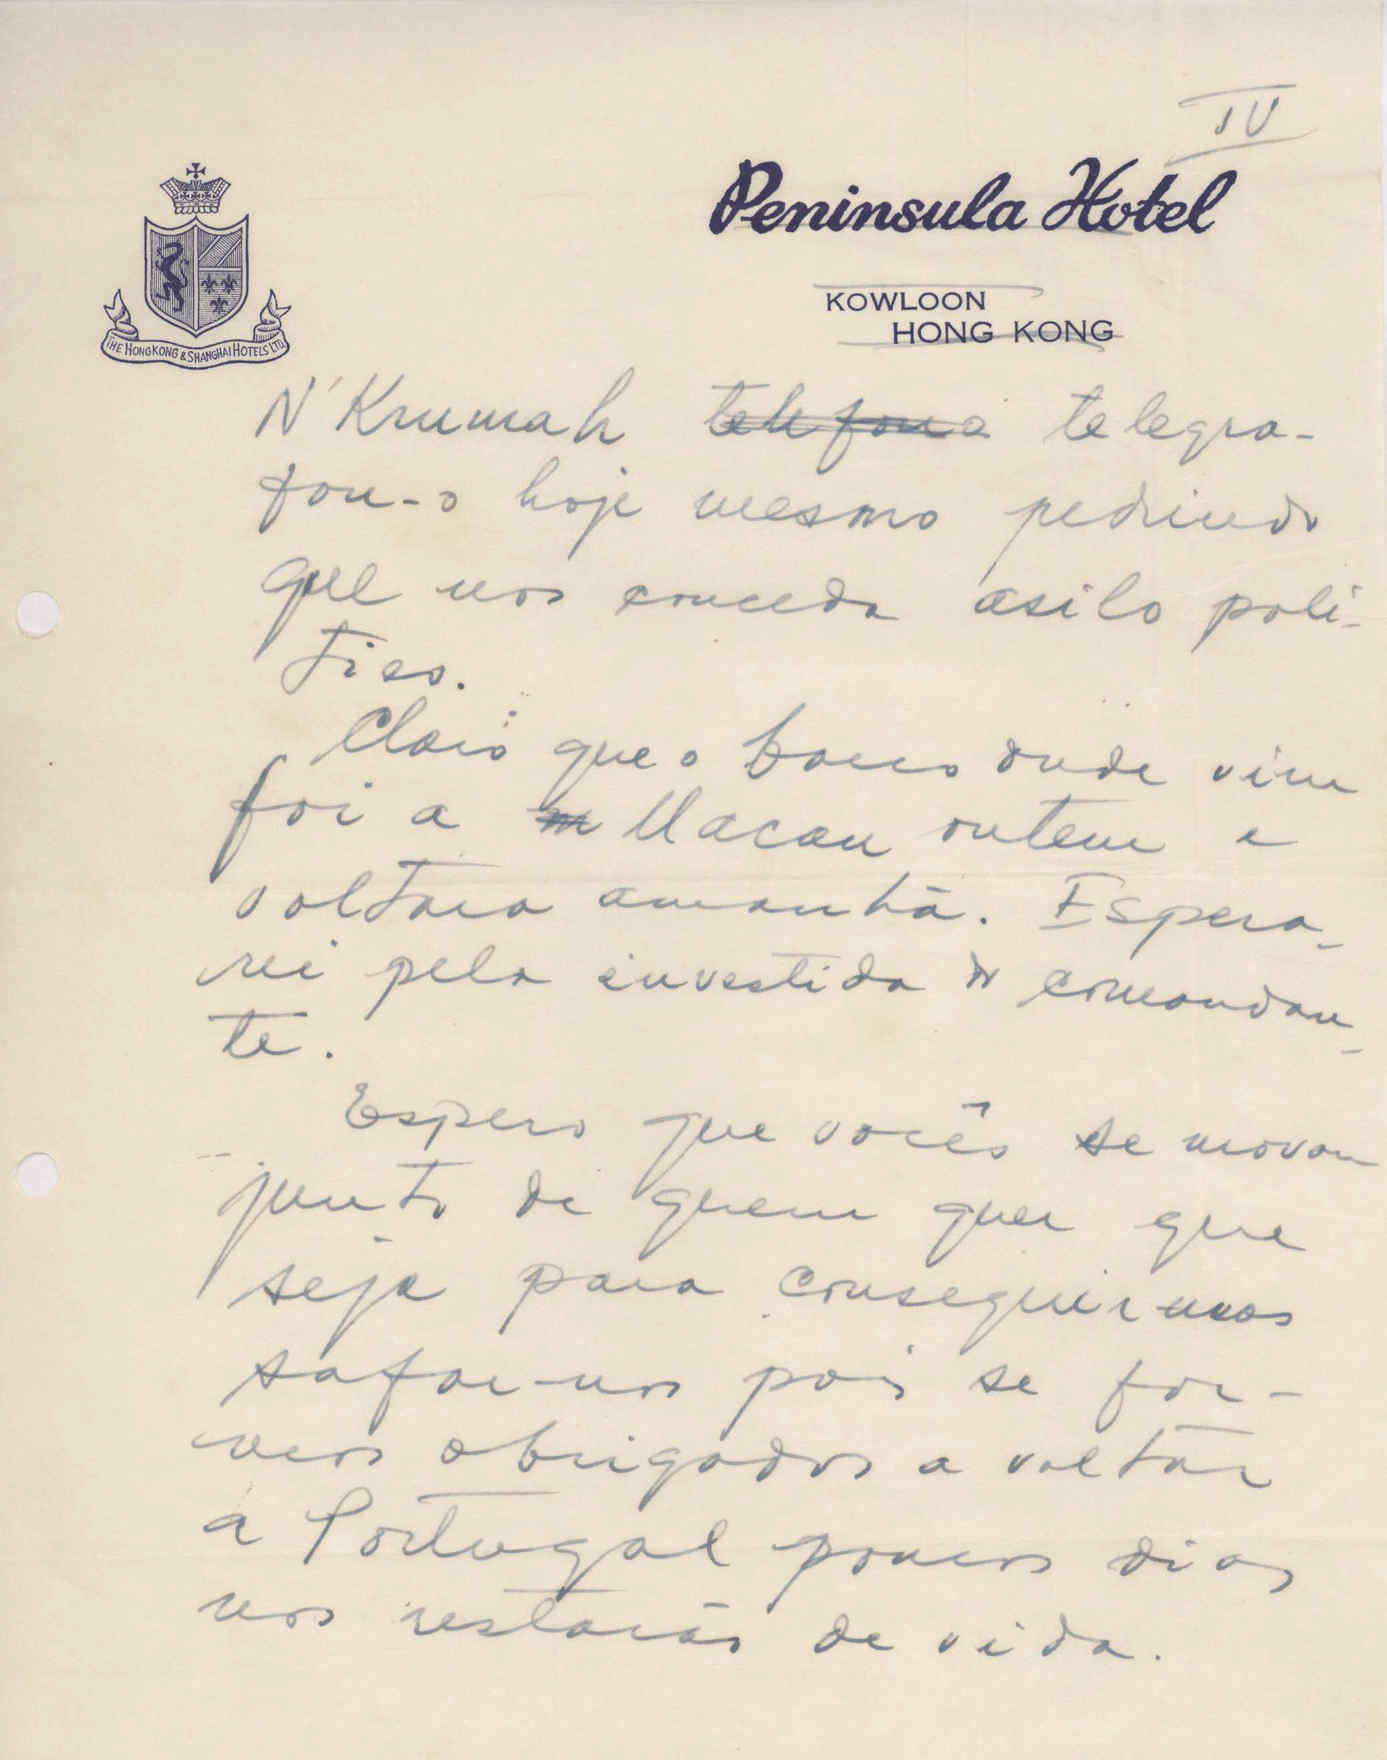 IV
Peninsula Hotel
KOWLOON
HONG KONG
THE HONGKONG & SHANGHAI HOTELS LTD.
N'Krumah telefona telegra-
fou-o hoje mesmo pedindo
que nos conceda asilo poli-
tico.
Claro que o barco onde vim
foi a m Macau ontem e
voltara amanhã. Espera-
rei pela investida do comandan-
te.
Espero que vocês se movam
junto de quem quer que
seja para conseguirmos
safar-nos pois se for-
mos obrigados a voltar
a Portugal poucos dias
nos restarão de vida.